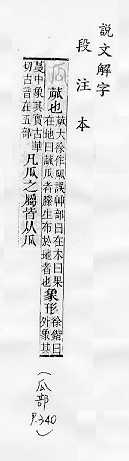 說文解字
段注本
瓜
蓏也
蓏大徐作㼌誤艸部曰在木曰果
在地曰蓏瓜者縢生布於地者也
象形
徐鍇曰
外象其
蔓中象其實古華
切古音在五部
凡瓜之屬皆从瓜
(瓜部
P.340)